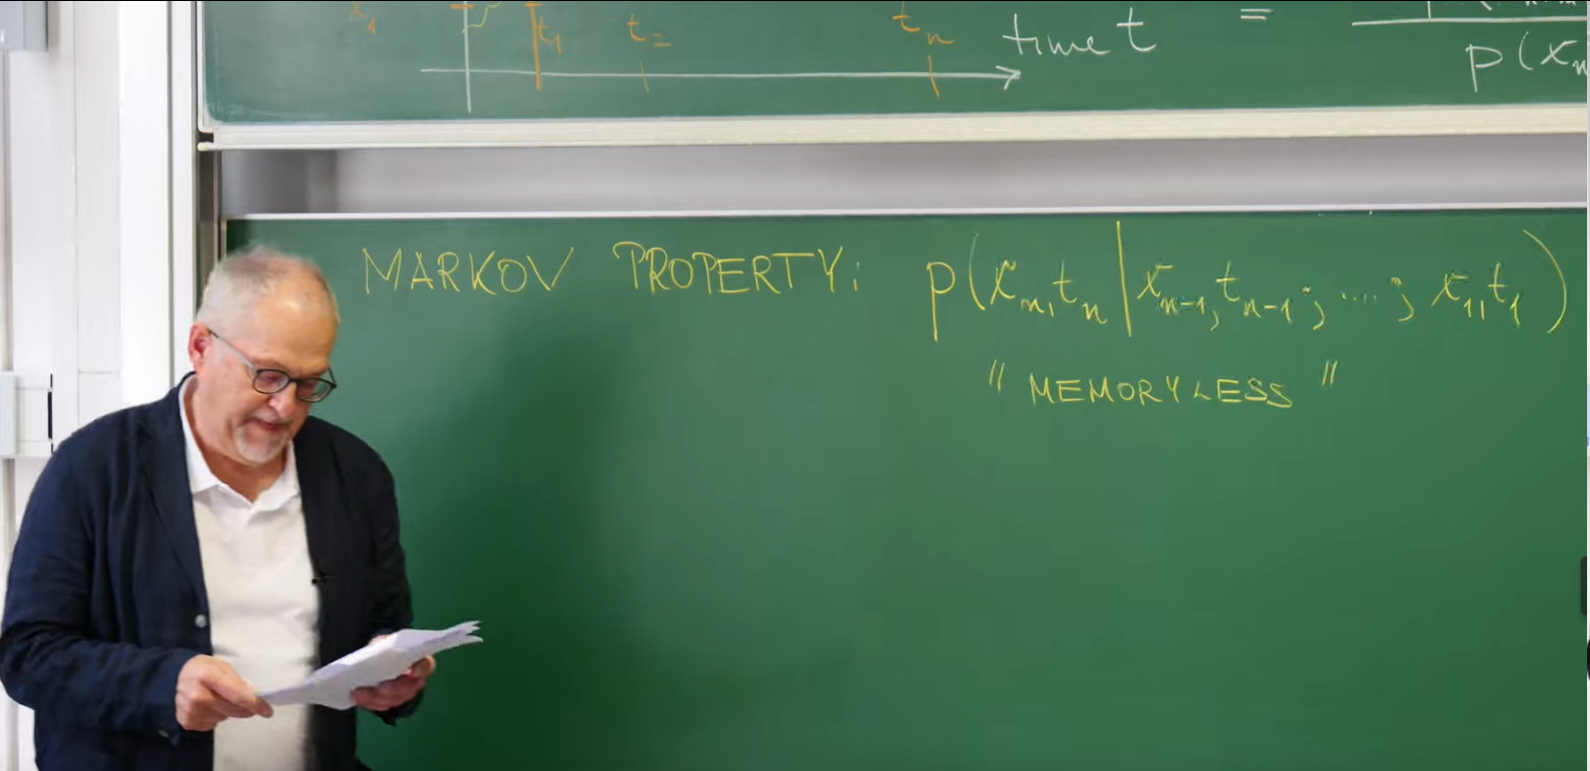 x₁ t₁ t₂ tₙ time t =
p(xₙ
MARKOV PROPERTY: p(xₙ, tₙ | xₙ₋₁, tₙ₋₁; ....; x₁, t₁)
"MEMORYLESS"